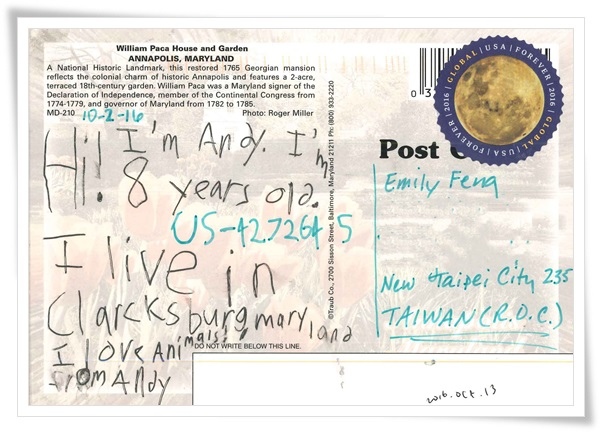 William Paca House and Garden
ANNAPOLIS, MARYLAND
A National Historic Landmark, this restored 1765 Georgian mansion
reflects the colonial charm of historic Annapolis and features a 2-acre,
terraced 18th-century garden. William Paca was a Maryland signer of the
Declaration of Independence, member of the Continental Congress from
1774-1779, and governor of Maryland from 1782 to 1785.
MD-210 Photo: Roger Miller
10-2-16
Hi! I'm Andy. I'm
8 years old.
US-4272645
I live in
Clarcksburg maryland
I love Animals!
from Andy
DO NOT WRITE BELOW THIS LINE.
©Traub Co., 2700 Sisson Street, Baltimore, Maryland 21211 Ph: (800) 933-2220
0
GLOBAL | USA | FOREVER | 2016 | GLOBAL | USA | FOREVER | 2016
Post
Emily Feng
New Taipei City 235
TAIWAN (R.O.C.)
2016.oct.13